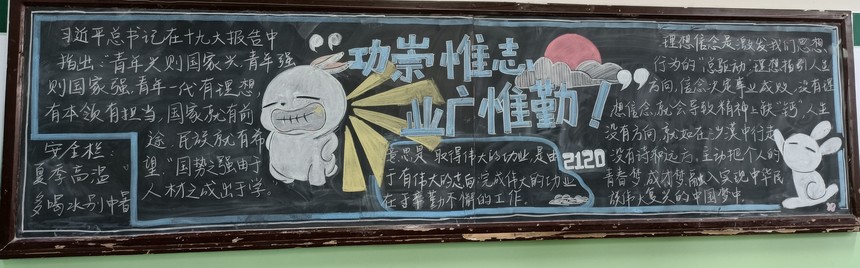 习近平总书记在十九大报告中
指出:“青年兴则国家兴,青年强
则国家强,青年一代有理想,
有本领有担当,国家就有前
途,民族就有希
望。”国势之强由于
人,人材之成出于学。
安全栏:
夏季高温
多喝水别中暑
功崇惟志,
业广惟勤!
意思是:取得伟大的功业,是由
于有伟大的志向;完成伟大的功业
在于辛勤不懈的工作。
2120
理想信念是激发我们思想
行为的“总驱动”理想指引人生
方向,信念决定事业成败。没有理
想信念,就会导致精神上缺“钙”人生
没有方向,就如在沙漠中行走
没有诗和远方。主动把个人的
青春梦,成才梦,融入实现中华民
族伟大复兴的中国梦中。